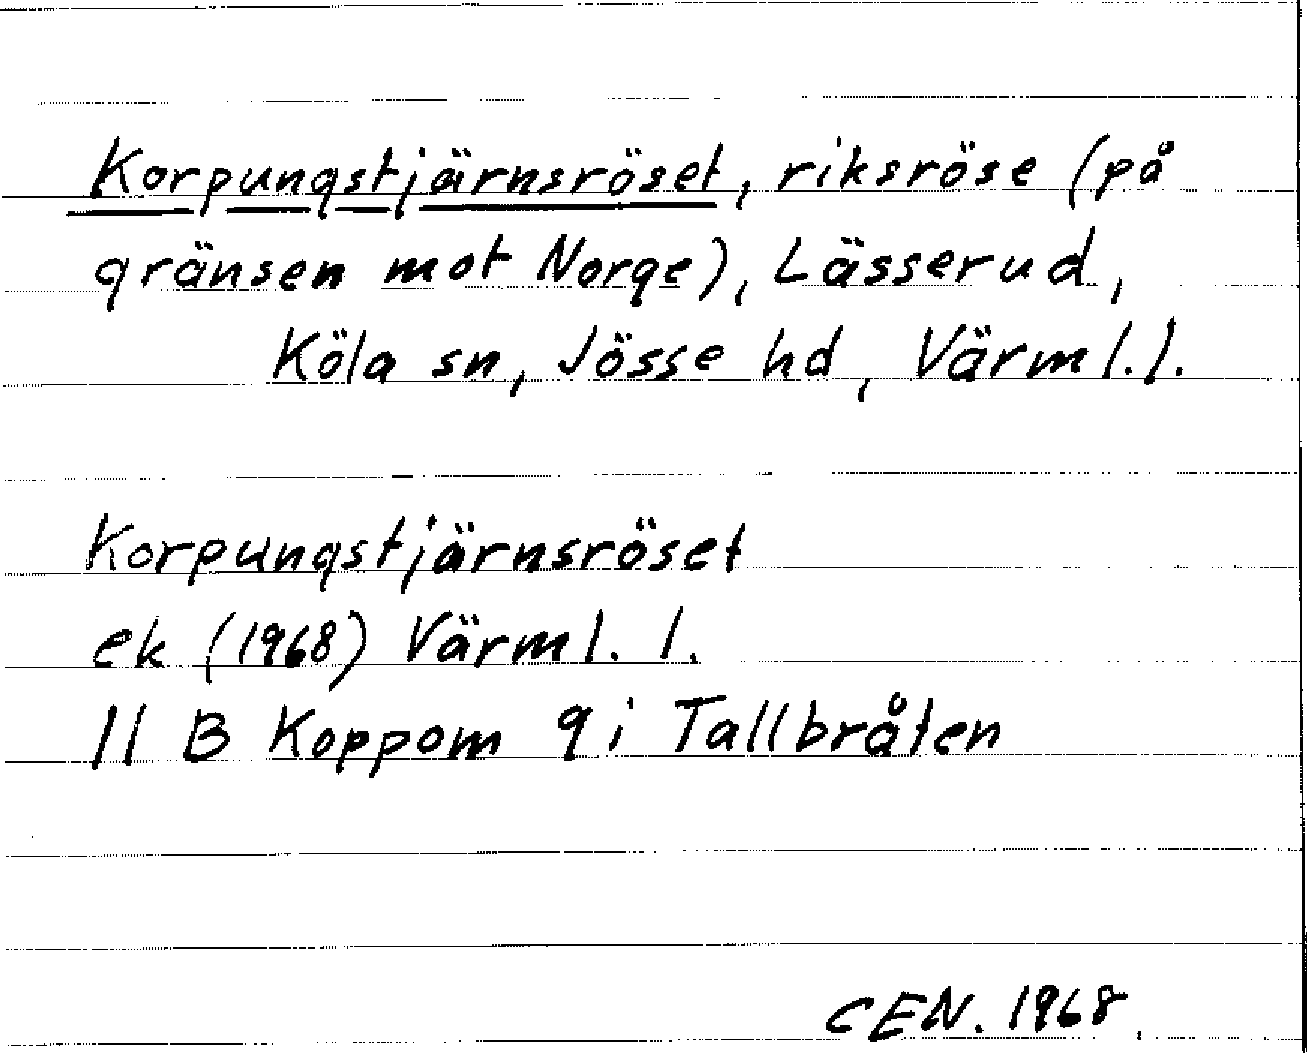 Korpungstjärnsröset, riksröse (på
gränsen mot Norge), Lässerud,
Köla sn, Jösse hd, Värml.l.
Korpungstjärnsröset
ek (1968) Värml. l.
11 B Koppom 9i Tallbråten
CEN. 1968.